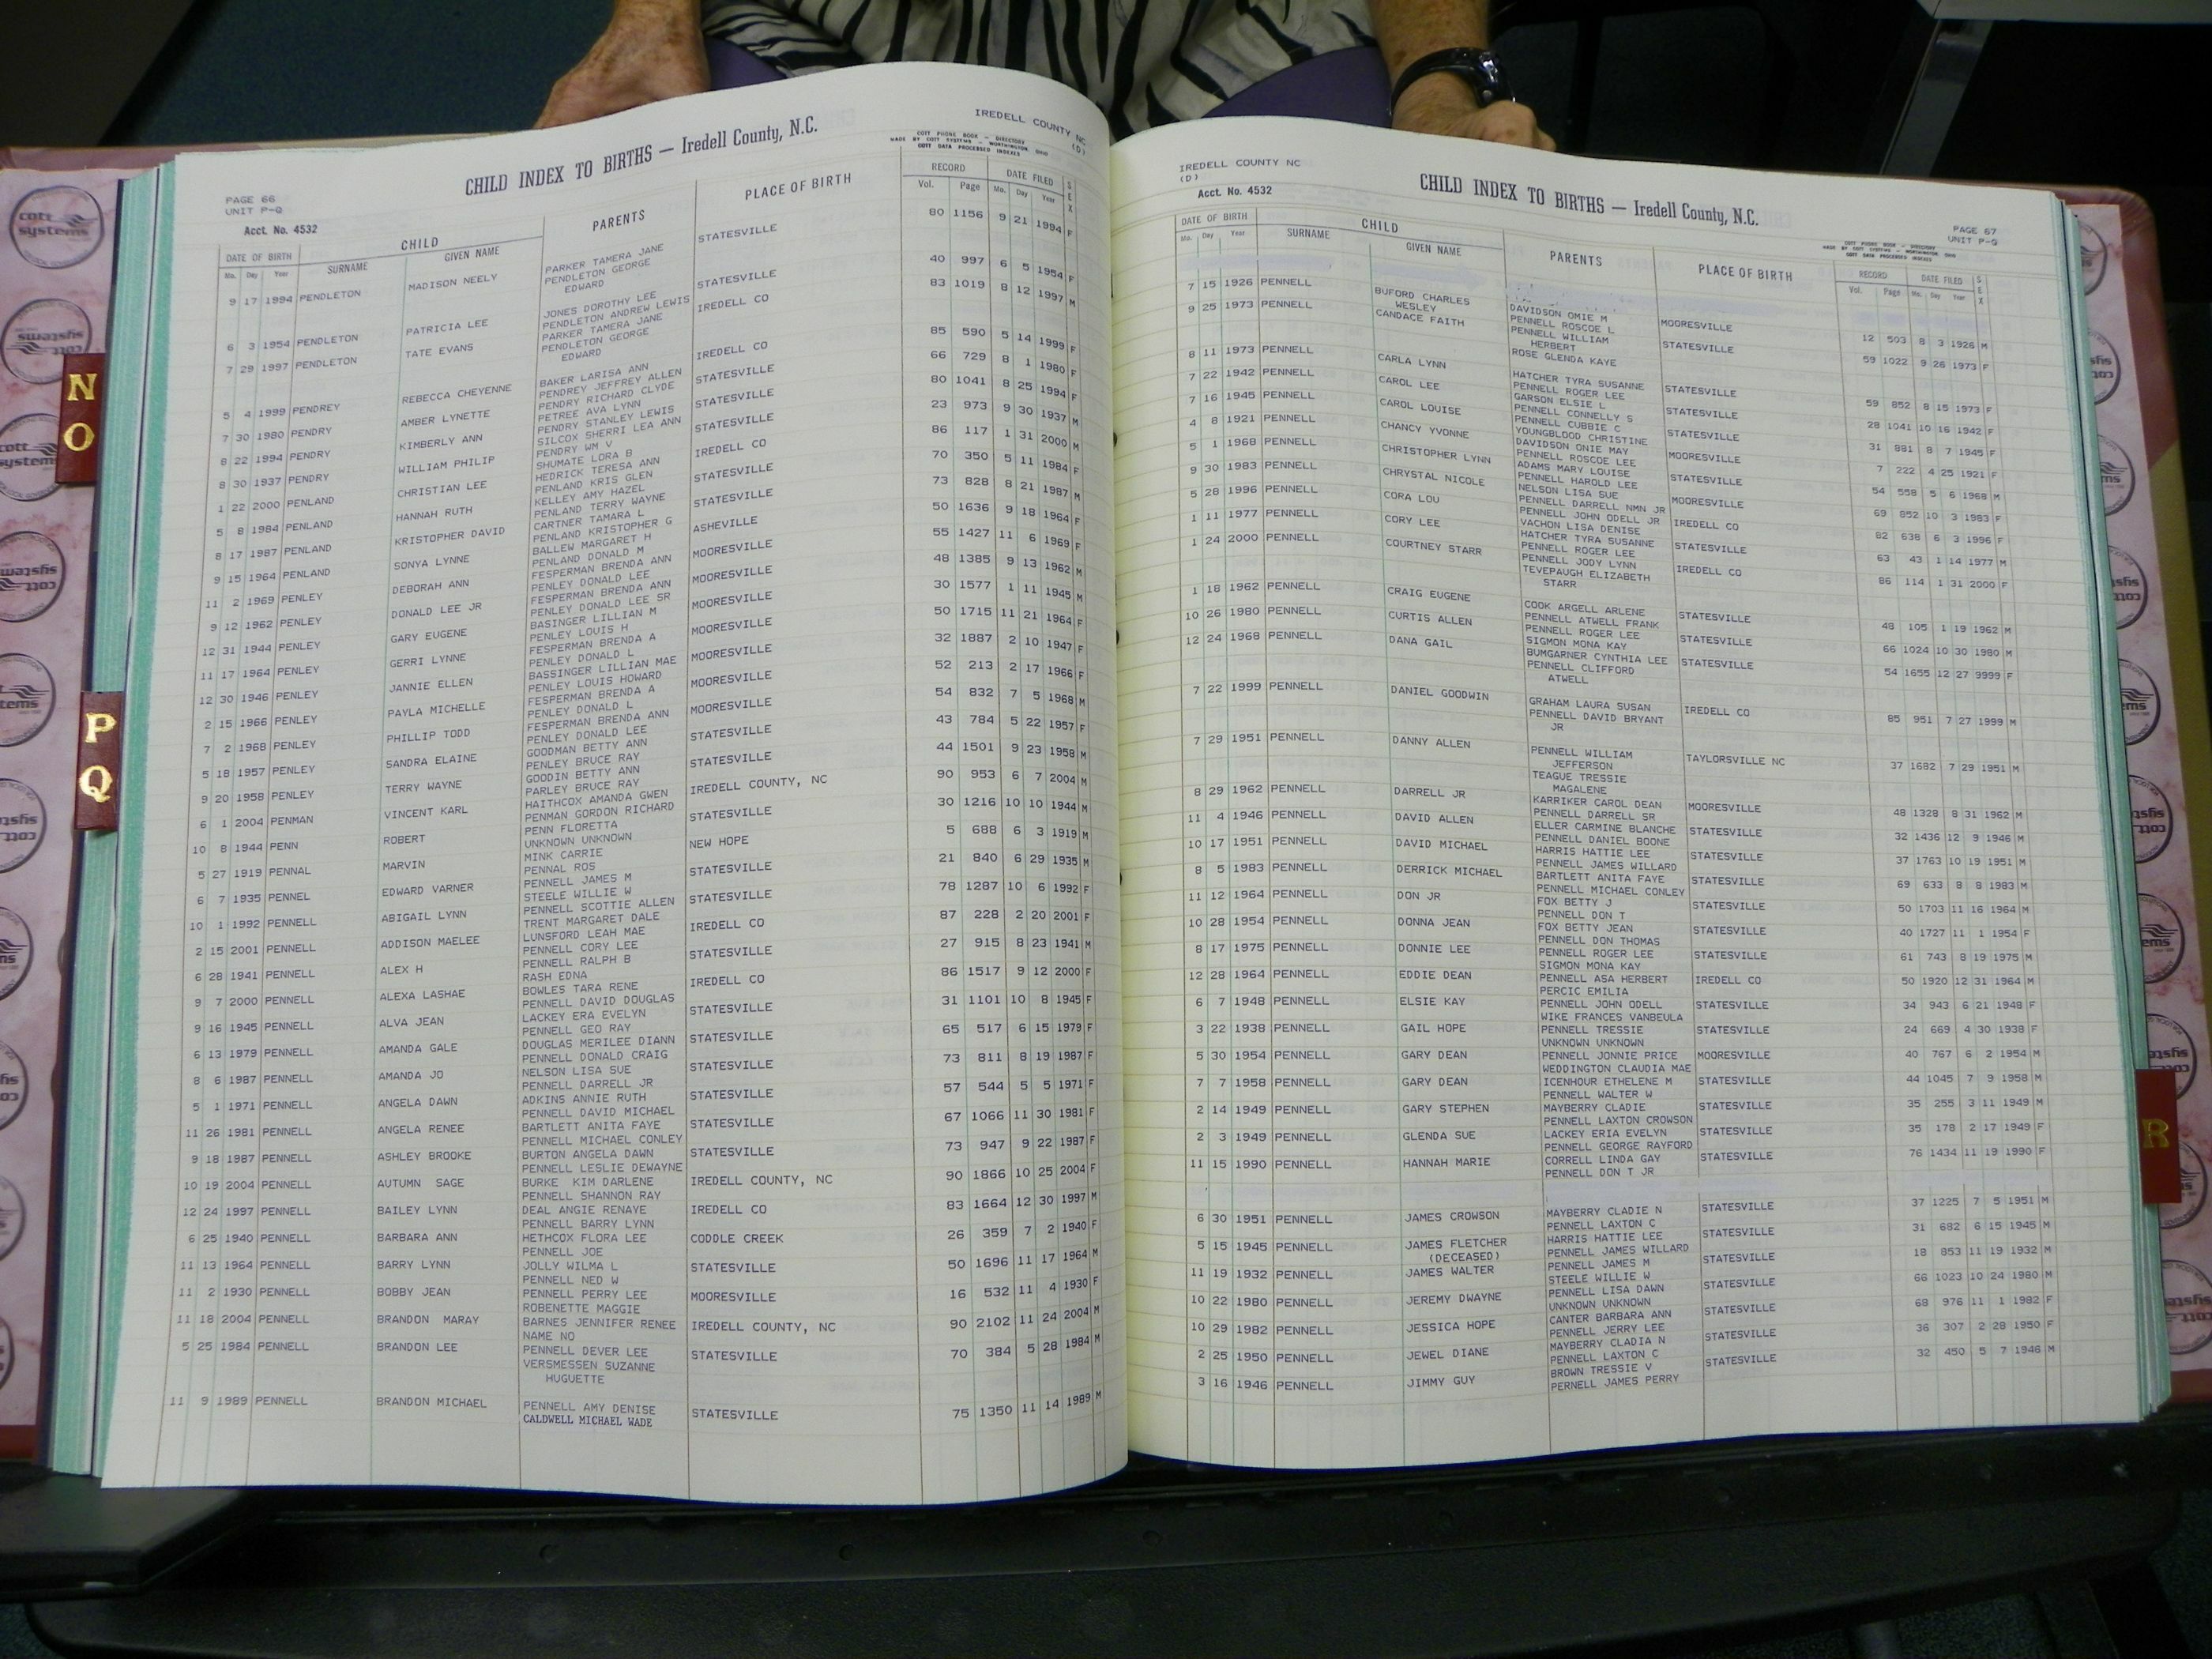 IREDELL COUNTY NC
(D)
COTT PHONE BOOK — DIRECTORY
MADE BY COTT SYSTEMS — WORTHINGTON, OHIO
COTT DATA PROCESSED INDEXES
CHILD INDEX TO BIRTHS — Iredell County, N.C.
PAGE 66
UNIT P-Q
Acct. No. 4532
DATE OF BIRTH CHILD PARENTS PLACE OF BIRTH RECORD DATE FILED SEX
Mo. Day Year SURNAME GIVEN NAME Vol. Page Mo. Day Year
9 17 1994 PENDLETON MADISON NEELY PARKER TAMERA JANE STATESVILLE 80 1156 9 21 1994 F
PENDLETON GEORGE
EDWARD
6 3 1954 PENDLETON PATRICIA LEE JONES DOROTHY LEE STATESVILLE 40 997 6 5 1954 F
PENDLETON ANDREW LEWIS
7 29 1997 PENDLETON TATE EVANS PARKER TAMERA JANE IREDELL CO 83 1019 8 12 1997 M
PENDLETON GEORGE
EDWARD
5 4 1999 PENDREY REBECCA CHEYENNE BAKER LARISA ANN IREDELL CO 85 590 5 14 1999 F
PENDREY JEFFREY ALLEN
7 30 1980 PENDRY AMBER LYNETTE PENDRY RICHARD CLYDE STATESVILLE 66 729 8 1 1980 F
PETREE AVA LYNN
8 22 1994 PENDRY KIMBERLY ANN PENDRY STANLEY LEWIS STATESVILLE 80 1041 8 25 1994 F
SILCOX SHERRI LEA ANN
8 30 1937 PENDRY WILLIAM PHILIP PENDRY WM V STATESVILLE 23 973 9 30 1937 M
SHUMATE LORA B
1 22 2000 PENLAND CHRISTIAN LEE HEDRICK TERESA ANN IREDELL CO 86 117 1 31 2000 M
PENLAND KRIS GLEN
5 8 1984 PENLAND HANNAH RUTH KELLEY AMY HAZEL STATESVILLE 70 350 5 11 1984 F
PENLAND TERRY WAYNE
8 17 1987 PENLAND KRISTOPHER DAVID CARTNER TAMARA L STATESVILLE 73 828 8 21 1987 M
PENLAND KRISTOPHER G
9 15 1964 PENLAND SONYA LYNNE BALLEW MARGARET H ASHEVILLE 50 1636 9 18 1964 F
PENLAND DONALD M
11 2 1969 PENLEY DEBORAH ANN FESPERMAN BRENDA ANN MOORESVILLE 55 1427 11 6 1969 F
PENLEY DONALD LEE
9 12 1962 PENLEY DONALD LEE JR FESPERMAN BRENDA ANN MOORESVILLE 48 1385 9 13 1962 M
PENLEY DONALD LEE SR
12 31 1944 PENLEY GARY EUGENE BASINGER LILLIAN M MOORESVILLE 30 1577 1 11 1945 M
PENLEY LOUIS H
11 17 1964 PENLEY GERRI LYNNE FESPERMAN BRENDA A MOORESVILLE 50 1715 11 21 1964 F
PENLEY DONALD L
12 30 1946 PENLEY JANNIE ELLEN BASSINGER LILLIAN MAE MOORESVILLE 32 1887 2 10 1947 F
PENLEY LOUIS HOWARD
2 15 1966 PENLEY PAYLA MICHELLE FESPERMAN BRENDA A MOORESVILLE 52 213 2 17 1966 F
PENLEY DONALD L
7 2 1968 PENLEY PHILLIP TODD FESPERMAN BRENDA ANN MOORESVILLE 54 832 7 5 1968 M
PENLEY DONALD LEE
5 18 1957 PENLEY SANDRA ELAINE GOODMAN BETTY ANN STATESVILLE 43 784 5 22 1957 F
PENLEY BRUCE RAY
9 20 1958 PENLEY TERRY WAYNE GOODIN BETTY ANN STATESVILLE 44 1501 9 23 1958 M
PARLEY BRUCE RAY
6 1 2004 PENMAN VINCENT KARL HAITHCOX AMANDA GWEN IREDELL COUNTY, NC 90 953 6 7 2004 M
PENMAN GORDON RICHARD
10 8 1944 PENN ROBERT PENN FLORETTA STATESVILLE 30 1216 10 10 1944 M
UNKNOWN UNKNOWN
5 27 1919 PENNAL MARVIN MINK CARRIE NEW HOPE 5 688 6 3 1919 M
PENNAL ROS
6 7 1935 PENNEL EDWARD VARNER PENNELL JAMES M STATESVILLE 21 840 6 29 1935 M
STEELE WILLIE W
10 1 1992 PENNELL ABIGAIL LYNN PENNELL SCOTTIE ALLEN STATESVILLE 78 1287 10 6 1992 F
TRENT MARGARET DALE
2 15 2001 PENNELL ADDISON MAELEE LUNSFORD LEAH MAE IREDELL CO 87 228 2 20 2001 F
PENNELL CORY LEE
6 28 1941 PENNELL ALEX H PENNELL RALPH B STATESVILLE 27 915 8 23 1941 M
RASH EDNA
9 7 2000 PENNELL ALEXA LASHAE BOWLES TARA RENE IREDELL CO 86 1517 9 12 2000 F
PENNELL DAVID DOUGLAS
9 16 1945 PENNELL ALVA JEAN LACKEY ERA EVELYN STATESVILLE 31 1101 10 8 1945 F
PENNELL GEO RAY
6 13 1979 PENNELL AMANDA GALE DOUGLAS MERILEE DIANN STATESVILLE 65 517 6 15 1979 F
PENNELL DONALD CRAIG
8 6 1987 PENNELL AMANDA JO NELSON LISA SUE STATESVILLE 73 811 8 19 1987 F
PENNELL DARRELL JR
5 1 1971 PENNELL ANGELA DAWN ADKINS ANNIE RUTH STATESVILLE 57 544 5 5 1971 F
PENNELL DAVID MICHAEL
11 26 1981 PENNELL ANGELA RENEE BARTLETT ANITA FAYE STATESVILLE 67 1066 11 30 1981 F
PENNELL MICHAEL CONLEY
9 18 1987 PENNELL ASHLEY BROOKE BURTON ANGELA DAWN STATESVILLE 73 947 9 22 1987 F
PENNELL LESLIE DEWAYNE
10 19 2004 PENNELL AUTUMN SAGE BURKE KIM DARLENE IREDELL COUNTY, NC 90 1866 10 25 2004 F
PENNELL SHANNON RAY
12 24 1997 PENNELL BAILEY LYNN DEAL ANGIE RENAYE IREDELL CO 83 1664 12 30 1997 M
PENNELL BARRY LYNN
6 25 1940 PENNELL BARBARA ANN HETHCOX FLORA LEE CODDLE CREEK 26 359 7 2 1940 F
PENNELL JOE
11 13 1964 PENNELL BARRY LYNN JOLLY WILMA L STATESVILLE 50 1696 11 17 1964 M
PENNELL NED W
11 2 1930 PENNELL BOBBY JEAN PENNELL PERRY LEE MOORESVILLE 16 532 11 4 1930 F
ROBENETTE MAGGIE
11 18 2004 PENNELL BRANDON MARAY BARNES JENNIFER RENEE IREDELL COUNTY, NC 90 2102 11 24 2004 M
NAME NO
5 25 1984 PENNELL BRANDON LEE PENNELL DEVER LEE STATESVILLE 70 384 5 28 1984 M
VERSMESSEN SUZANNE
HUGUETTE
11 9 1989 PENNELL BRANDON MICHAEL PENNELL AMY DENISE STATESVILLE 75 1350 11 14 1989 M
CALDWELL MICHAEL WADE
IREDELL COUNTY NC
(D)
Acct. No. 4532
CHILD INDEX TO BIRTHS — Iredell County, N.C.
PAGE 67
UNIT P-Q
COTT PHONE BOOK — DIRECTORY
MADE BY COTT SYSTEMS — WORTHINGTON, OHIO
COTT DATA PROCESSED INDEXES
DATE OF BIRTH CHILD PARENTS PLACE OF BIRTH RECORD DATE FILED SEX
Mo. Day Year SURNAME GIVEN NAME Vol. Page Mo. Day Year
7 15 1926 PENNELL BUFORD CHARLES DAVIDSON OMIE M MOORESVILLE 12 503 8 3 1926 M
WESLEY PENNELL ROSCOE L
9 25 1973 PENNELL CANDACE FAITH PENNELL WILLIAM STATESVILLE 59 1022 9 26 1973 F
HERBERT
ROSE GLENDA KAYE
8 11 1973 PENNELL CARLA LYNN HATCHER TYRA SUSANNE STATESVILLE 59 852 8 15 1973 F
PENNELL ROGER LEE
7 22 1942 PENNELL CAROL LEE GARSON ELSIE L STATESVILLE 28 1041 10 16 1942 F
PENNELL CONNELLY S
7 16 1945 PENNELL CAROL LOUISE PENNELL CUBBIE C STATESVILLE 31 881 8 7 1945 F
YOUNGBLOOD CHRISTINE
4 8 1921 PENNELL CHANCY YVONNE DAVIDSON ONIE MAY MOORESVILLE 7 222 4 25 1921 F
PENNELL ROSCOE LEE
5 1 1968 PENNELL CHRISTOPHER LYNN ADAMS MARY LOUISE STATESVILLE 54 558 5 6 1968 M
PENNELL HAROLD LEE
9 30 1983 PENNELL CHRYSTAL NICOLE NELSON LISA SUE MOORESVILLE 69 852 10 3 1983 F
PENNELL DARRELL NMN JR
5 28 1996 PENNELL CORA LOU PENNELL JOHN ODELL JR IREDELL CO 82 638 6 3 1996 F
VACHON LISA DENISE
1 11 1977 PENNELL CORY LEE HATCHER TYRA SUSANNE STATESVILLE 63 43 1 14 1977 M
PENNELL ROGER LEE
1 24 2000 PENNELL COURTNEY STARR PENNELL JODY LYNN IREDELL CO 86 114 1 31 2000 F
TEVEPAUGH ELIZABETH
STARR
1 18 1962 PENNELL CRAIG EUGENE COOK ARGELL ARLENE STATESVILLE 48 105 1 19 1962 M
PENNELL ATWELL FRANK
10 26 1980 PENNELL CURTIS ALLEN PENNELL ROGER LEE STATESVILLE 66 1024 10 30 1980 M
SIGMON MONA KAY
12 24 1968 PENNELL DANA GAIL BUMGARNER CYNTHIA LEE STATESVILLE 54 1655 12 27 9999 F
PENNELL CLIFFORD
ATWELL
7 22 1999 PENNELL DANIEL GOODWIN GRAHAM LAURA SUSAN IREDELL CO 85 951 7 27 1999 M
PENNELL DAVID BRYANT
JR
7 29 1951 PENNELL DANNY ALLEN PENNELL WILLIAM TAYLORSVILLE NC 37 1682 7 29 1951 M
JEFFERSON
TEAGUE TRESSIE
MAGALENE
8 29 1962 PENNELL DARRELL JR KARRIKER CAROL DEAN MOORESVILLE 48 1328 8 31 1962 M
PENNELL DARRELL SR
11 4 1946 PENNELL DAVID ALLEN ELLER CARMINE BLANCHE STATESVILLE 32 1436 12 9 1946 M
PENNELL DANIEL BOONE
10 17 1951 PENNELL DAVID MICHAEL HARRIS HATTIE LEE STATESVILLE 37 1763 10 19 1951 M
PENNELL JAMES WILLARD
8 5 1983 PENNELL DERRICK MICHAEL BARTLETT ANITA FAYE STATESVILLE 69 633 8 8 1983 M
PENNELL MICHAEL CONLEY
11 12 1964 PENNELL DON JR FOX BETTY J STATESVILLE 50 1703 11 16 1964 M
PENNELL DON T
10 28 1954 PENNELL DONNA JEAN FOX BETTY JEAN STATESVILLE 40 1727 11 1 1954 F
PENNELL DON THOMAS
8 17 1975 PENNELL DONNIE LEE PENNELL ROGER LEE STATESVILLE 61 743 8 19 1975 M
SIGMON MONA KAY
12 28 1964 PENNELL EDDIE DEAN PENNELL ASA HERBERT IREDELL CO 50 1920 12 31 1964 M
PERCIC EMILIA
6 7 1948 PENNELL ELSIE KAY PENNELL JOHN ODELL STATESVILLE 34 943 6 21 1948 F
WIKE FRANCES VANBEULA
3 22 1938 PENNELL GAIL HOPE PENNELL TRESSIE STATESVILLE 24 669 4 30 1938 F
UNKNOWN UNKNOWN
5 30 1954 PENNELL GARY DEAN PENNELL JONNIE PRICE MOORESVILLE 40 767 6 2 1954 M
WEDDINGTON CLAUDIA MAE
7 7 1958 PENNELL GARY DEAN ICENHOUR ETHELENE M STATESVILLE 44 1045 7 9 1958 M
PENNELL WALTER W
2 14 1949 PENNELL GARY STEPHEN MAYBERRY CLADIE STATESVILLE 35 255 3 11 1949 M
PENNELL LAXTON CROWSON
2 3 1949 PENNELL GLENDA SUE LACKEY ERIA EVELYN STATESVILLE 35 178 2 17 1949 F
PENNELL GEORGE RAYFORD
11 15 1990 PENNELL HANNAH MARIE CORRELL LINDA GAY STATESVILLE 76 1434 11 19 1990 F
PENNELL DON T JR
6 30 1951 PENNELL JAMES CROWSON MAYBERRY CLADIE N STATESVILLE 37 1225 7 5 1951 M
PENNELL LAXTON C
5 15 1945 PENNELL JAMES FLETCHER HARRIS HATTIE LEE STATESVILLE 31 682 6 15 1945 M
(DECEASED) PENNELL JAMES WILLARD
11 19 1932 PENNELL JAMES WALTER PENNELL JAMES M STATESVILLE 18 853 11 19 1932 M
STEELE WILLIE W
10 22 1980 PENNELL JEREMY DWAYNE PENNELL LISA DAWN STATESVILLE 66 1023 10 24 1980 M
UNKNOWN UNKNOWN
10 29 1982 PENNELL JESSICA HOPE CANTER BARBARA ANN STATESVILLE 68 976 11 1 1982 F
PENNELL JERRY LEE
2 25 1950 PENNELL JEWEL DIANE MAYBERRY CLADIA N STATESVILLE 36 307 2 28 1950 F
PENNELL LAXTON C
3 16 1946 PENNELL JIMMY GUY BROWN TRESSIE V STATESVILLE 32 450 5 7 1946 M
PERNELL JAMES PERRY
N
O
P
Q
R
cott
systems